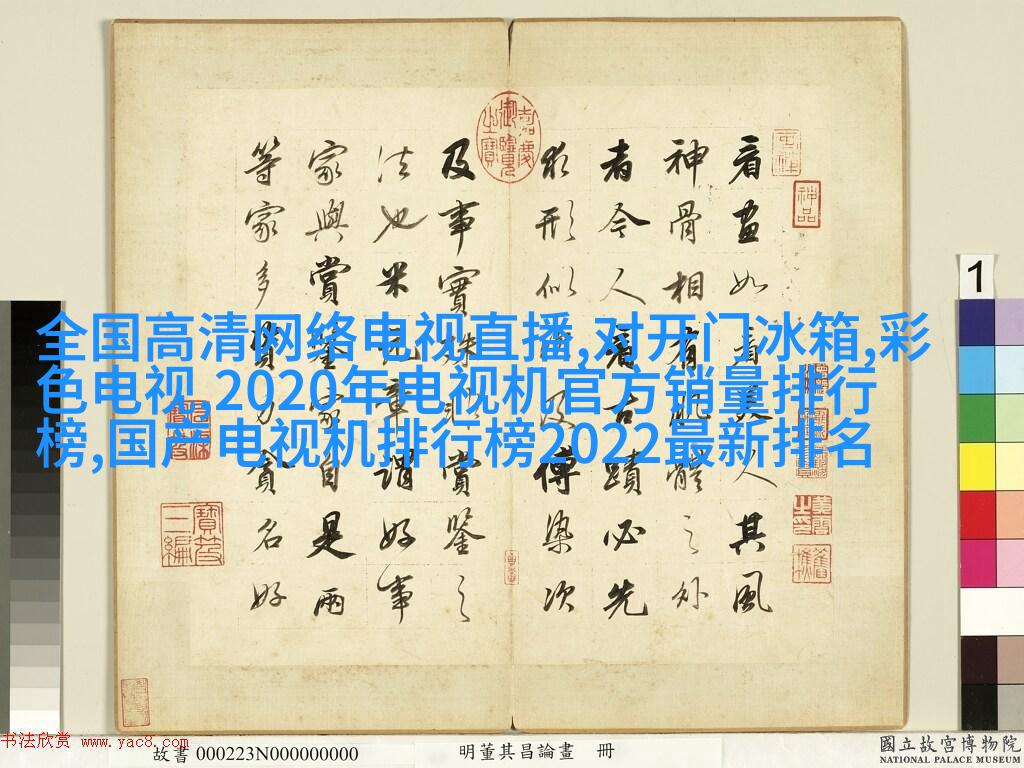 全国高清网络电视直播,对开门冰箱,彩
色电视,2020年电视机官方销量排行
榜,国产电视机排行榜2022最新排名
看畫如看美人其風
神骨相有肌體之外
者今人看古蹟必先
求形似及傅染次
及事實殊非賞鑒之
法也米元章謂好事
家與賞鑒家自是兩
等家多資力貪名好
嘉慶御覽之寶
神品
寶笈三編
1
书法欣赏 www.yac8.com
故書 000223N000000000
明董其昌論畫 冊
國立故宮博物院
NATIONAL PALACE MUSEUM